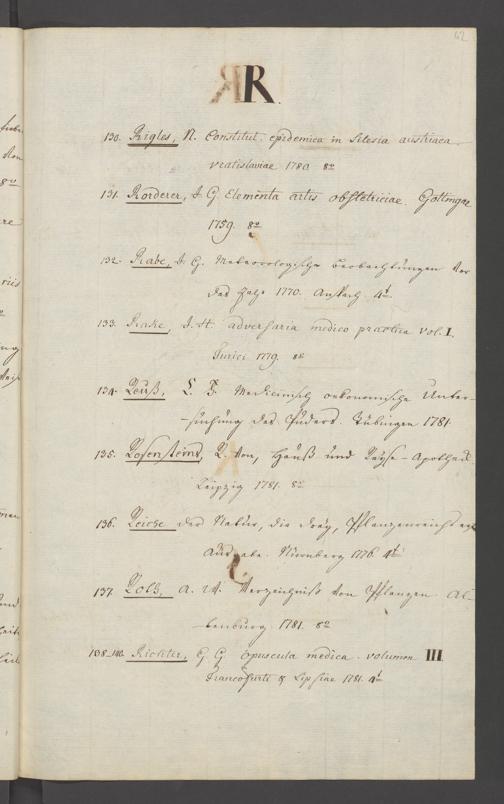 62
R.
130. Rigler, N. Constitut. epidemica in Silesia austriaca
vratislaviae 1780 8vo
131. Rörderer, I G Elementa artis obstetriciae. Gottingae
1759. 8vo
132. Rabe, I. G. Meteorologische Beobachtungen
1770. Ansbach. 4to
133. I. H. adversaria medico practica vol. I.
Turici 1779. 8vo
134. Reuß, Medicinisch oekonomische Unter-
suchung des Puders. Tübingen 1781.
135. Rosenstein, R. von, Hauß und Reyse-Apotheck
Leipzig 1781. 8vo
136. Reiche der Natur, die drey, Pflanzenreichs
Ausgabe. Nürnberg 1776. 4to
137. A. W. Verzeichniß von Pflanzen Al-
tenburg. 1781. 8vo
138-140. Richter, G. G. opuscula medica. volumen III
Francofurti & Lipsiae 1781. 4to